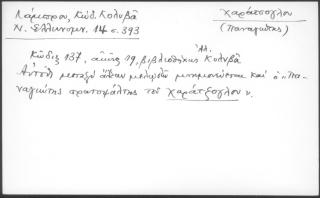 Λάμπρου, Κώδ. Κολυβᾶ
Ν. Ἑλληνομν. 14 σ. 393
Χαράτσογλου
(Παναγιώτης)
Κῶδιξ 137, αἰῶνος 19, βιβλιοθήκης Ἀλ. Κολυβᾶ
Αὐτόθι μεταξὺ ἄλλων μελῳδῶν μνημονεύεται καὶ ὁ "Πα-
ναγιώτης πρωτοψάλτης τοῦ Χαράτζογλου".